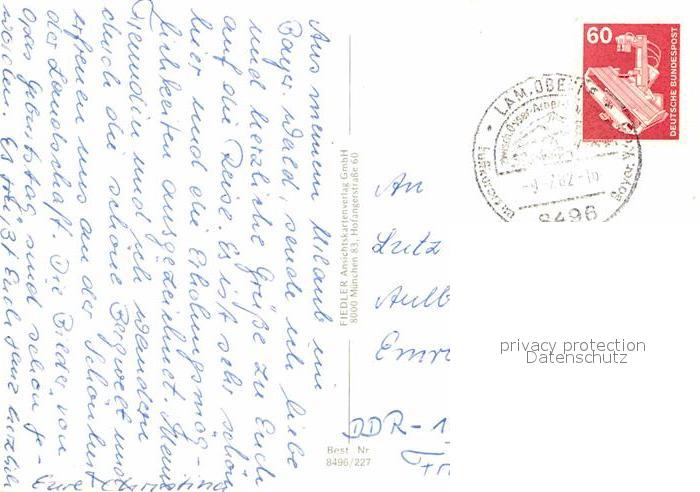 Aus meinem Urlaub im
Bayer. Wald, sende ich liebe
und herzliche Grüße zu Euch
auf die Reise. Es ist sehr schön
hier und die Erholungsmög-
lichkeiten ausgezeichnet. Meine
Freundin und ich wandern
durch die schöne Bergwelt und
erfreuen uns an der Schönheit
der Landschaft. Die Bilder von
Opas Geburtstag sind schön ge-
worden. Es grüßt Euch ganz herzlich
Eure Christina
FIEDLER Ansichtskartenverlag GmbH
8000 München 83, Hofangerstraße 60
Best. Nr
8496/227
An
Lutz
DDR-1
60
DEUTSCHE BUNDESPOST
LAM, OBE
8496
privacy protection
Datenschutz